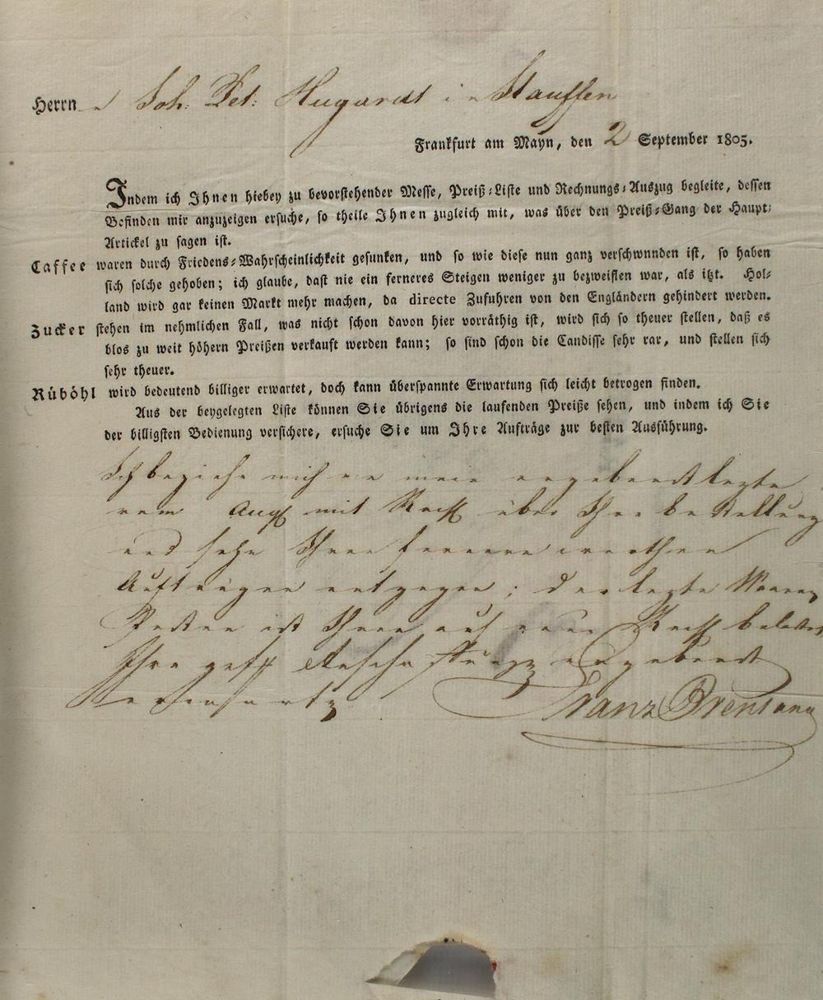 Herrn Joh: Pet: Hugardt in Stauffen
Frankfurt am Mayn, den 2 September 1805.
Indem ich Ihnen hiebey zu bevorstehender Messe, Preiß-Liste und Rechnungs-Auszug begleite, dessen
Befinden mir anzuzeigen ersuche, so theile Ihnen zugleich mit, was über den Preiß-Gang der Haupt-
Artickel zu sagen ist.
Caffee waren durch Friedens-Wahrscheinlichkeit gesunken, und so wie diese nun ganz verschwnnden ist, so haben
sich solche gehoben; ich glaube, dast nie ein ferneres Steigen weniger zu bezweiflen war, als itzt. Hol-
land wird gar keinen Markt mehr machen, da directe Zufuhren von den Engländern gehindert werden.
Zucker stehen im nehmlichen Fall, was nicht schon davon hier vorräthig ist, wird sich so theuer stellen, daß es
blos zu weit höhern Preißen verkauft werden kann; so sind schon die Candisse sehr rar, und stellen sich
sehr theuer.
Rüböhl wird bedeutend billiger erwartet, doch kann überspannte Erwartung sich leicht betrogen finden.
Aus der beygelegten Liste können Sie übrigens die laufenden Preiße sehen, und indem ich Sie
der billigsten Bedienung versichere, ersuche Sie um Ihre Aufträge zur besten Ausführung.
Ich beziehe mich an mein ergebenst letzte
vom Aug mit über Ihre bestellung
und sehe Ihren ferneren werthen
Aufträgen entgegen; der letzte
Posten ist Ihnen auf
Ihre ergebenst
Franz Brentano